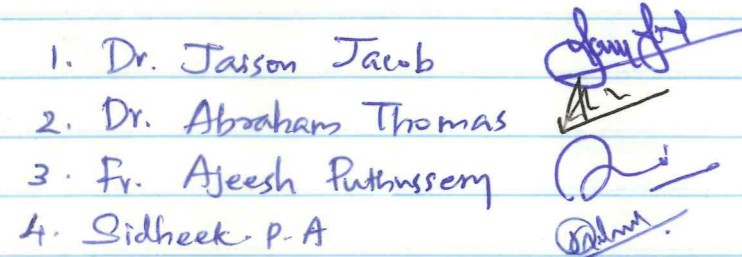 1. Dr. Jaison Jacob
2. Dr. Abraham Thomas
3. Fr. Ajeesh Puthussery
4. Sidheek. P-A